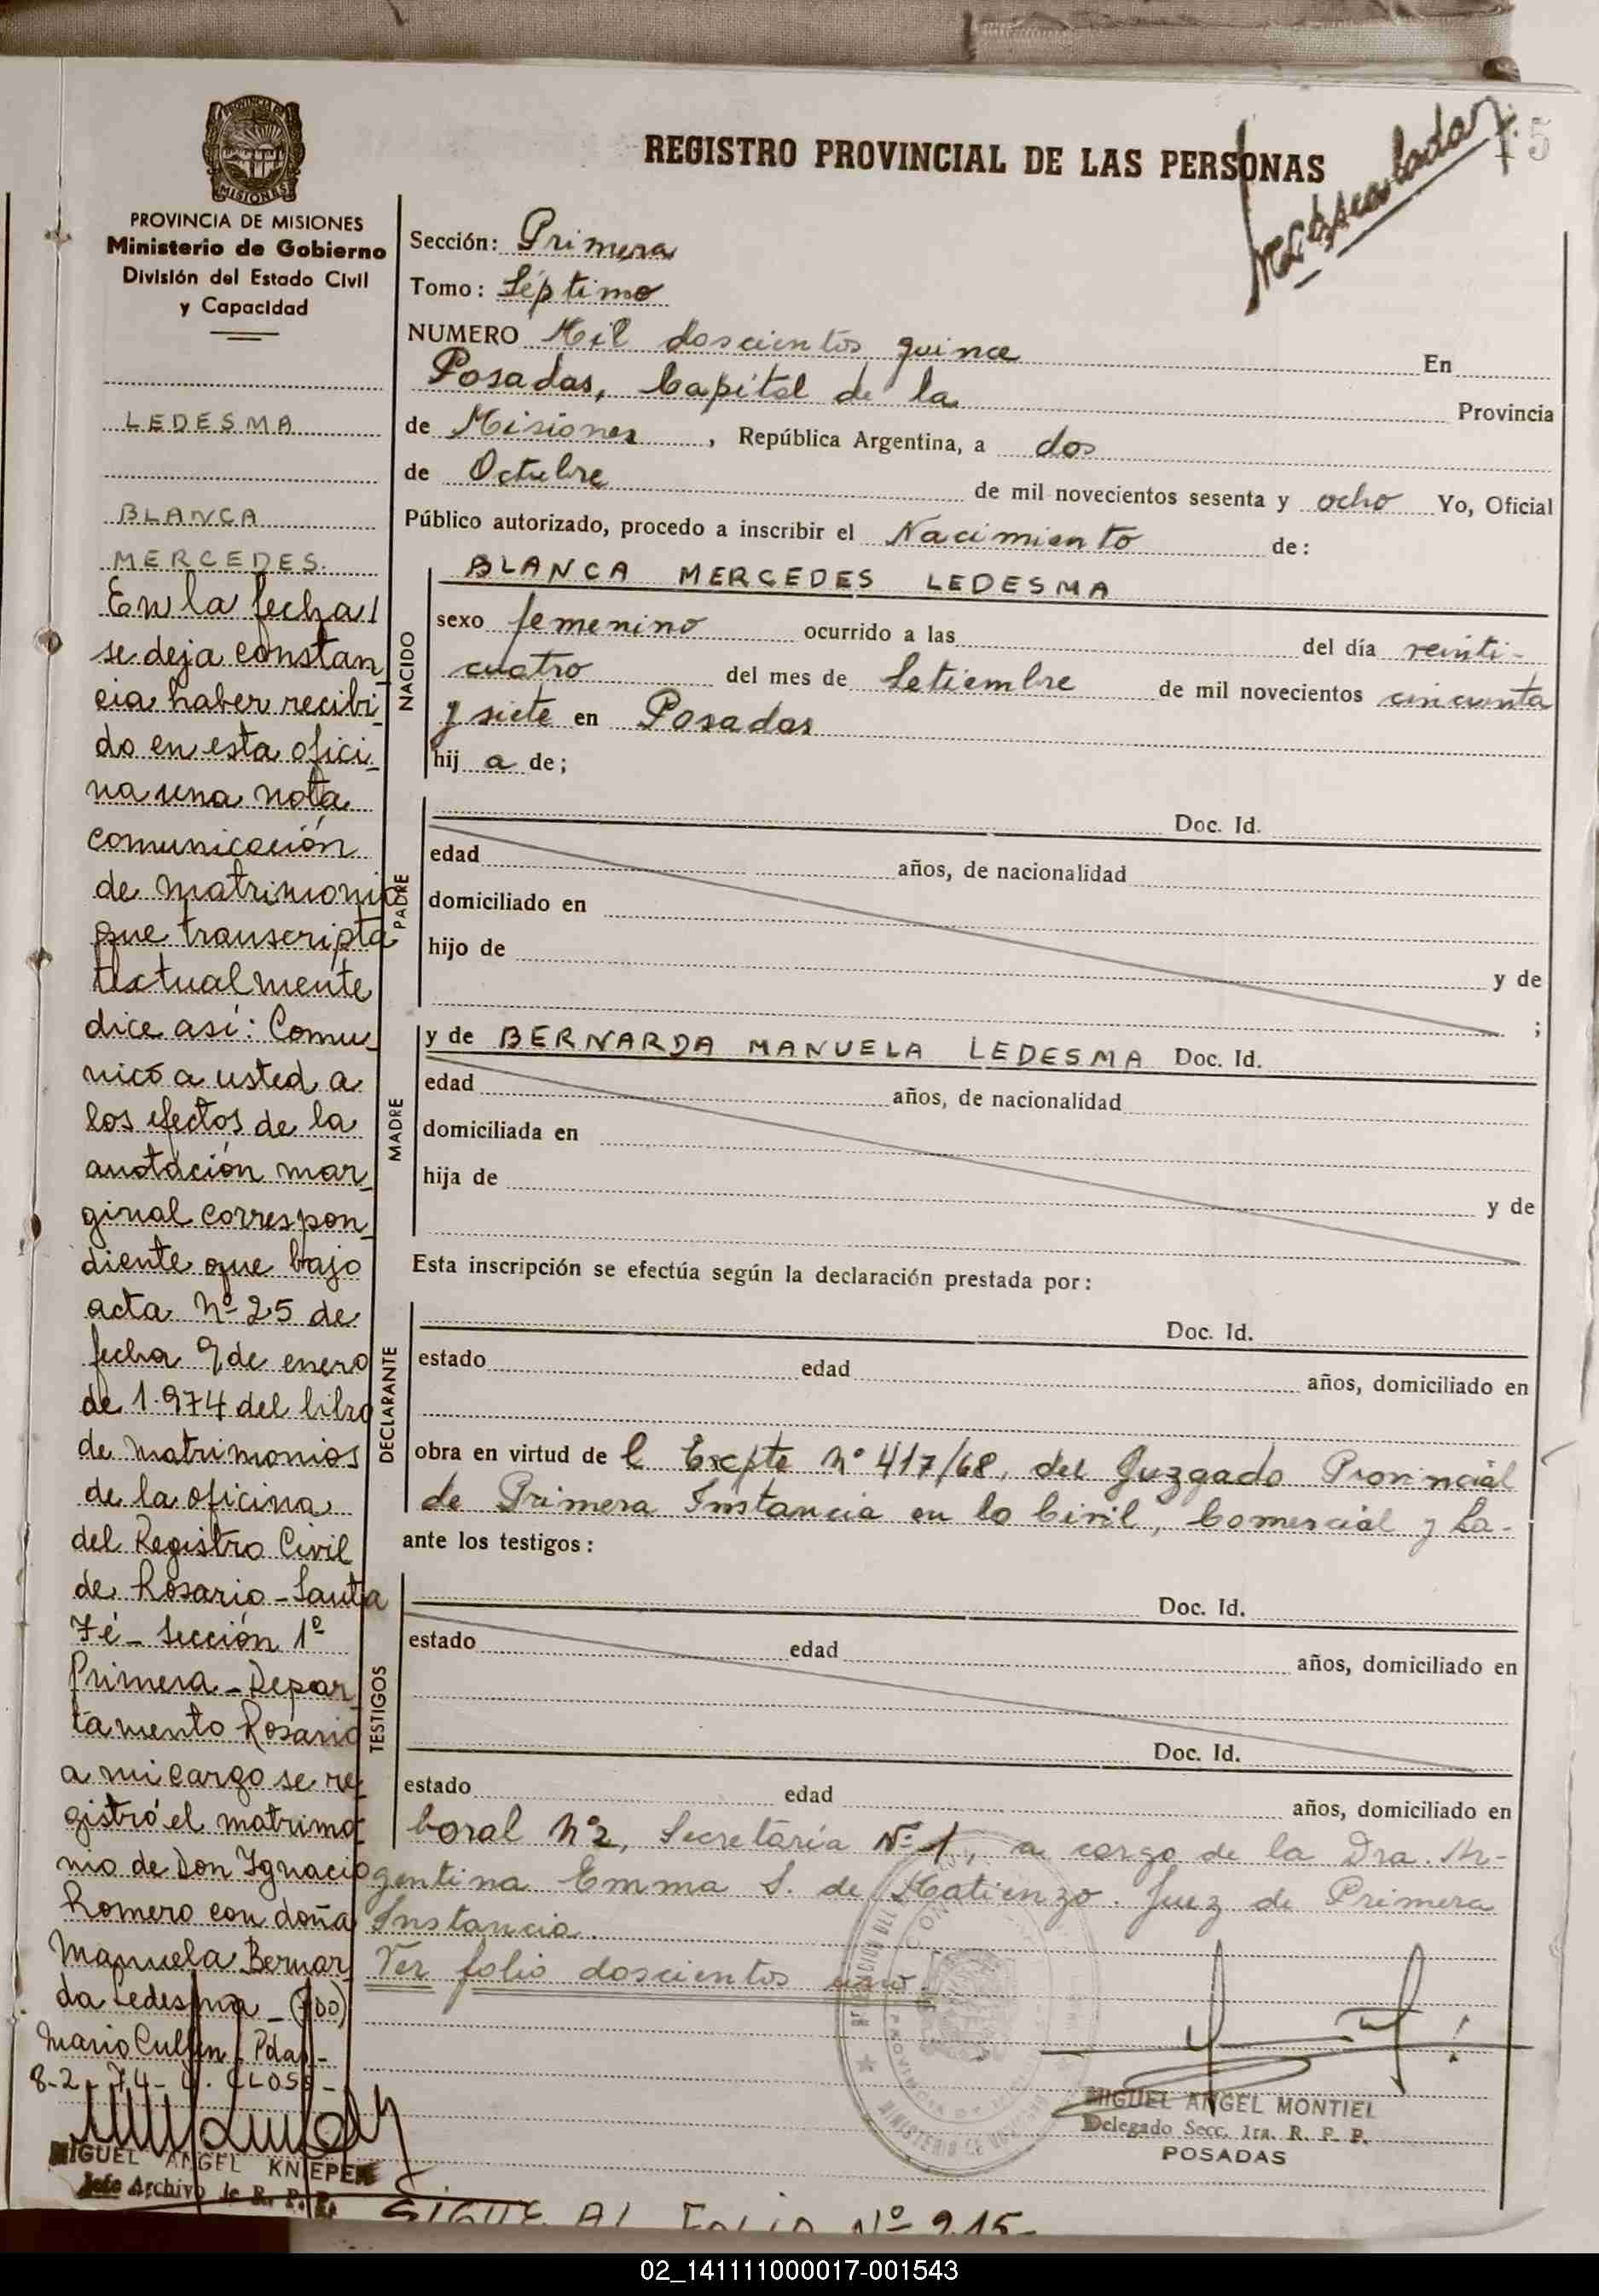 REGISTRO PROVINCIAL DE LAS PERSONAS
PROVINCIA DE MISIONES
Ministerio de Gobierno
División del Estado Civil
y Capacidad
LEDESMA
BLANCA
MERCEDES.
En la fecha
se deja constan
cia haber recibi
do en esta ofici
na una nota
comunicación
de matrimonio
que transcripta
textualmente
dice así: Comu
nico a usted a
los efectos de la
anotación mar
ginal correspon
diente que bajo
acta Nº 25 de
fecha 9 de enero
de 1.974 del libro
de matrimonios
de la oficina
del Registro Civil
de Rosario - Santa
Fé - Sección 1º
Primera - Depar
tamento Rosario
a mi cargo se re
gistró el matrimo
nio de Don Ignacio
Romero con doña
Manuela Bernar
da Ledesma - (FDO)
Mario Cullen. Pdas -
8-2-74- CLOSS -
MIGUEL ANGEL KNIEPER
Jefe Archivo de R. P. P.
Sección: Primera
Tomo: Séptimo
NUMERO Mil doscientos quince En
Posadas, Capital de la Provincia
de Misiones, República Argentina, a dos
de Octubre de mil novecientos sesenta y ocho Yo, Oficial
Público autorizado, procedo a inscribir el Nacimiento de:
NACIDO
BLANCA MERCEDES LEDESMA
sexo femenino ocurrido a las del día veinti-
cuatro del mes de Setiembre de mil novecientos cincuenta
y siete en Posadas
hij a de;
PADRE
Doc. Id.
edad años, de nacionalidad
domiciliado en
hijo de y de
;
MADRE
y de BERNARDA MANUELA LEDESMA Doc. Id.
edad años, de nacionalidad
domiciliada en
hija de y de
Esta inscripción se efectúa según la declaración prestada por:
DECLARANTE
Doc. Id.
estado edad años, domiciliado en
obra en virtud de l Excpte Nº 417/68, del Juzgado Provincial
de Primera Instancia en lo Civil, Comercial y La-
ante los testigos:
TESTIGOS
Doc. Id.
estado edad años, domiciliado en
Doc. Id.
estado edad años, domiciliado en
boral Nº2, Secretaría Nº 1, a cargo de la Dra. Ar-
gentina Emma S. de Matienzo. Juez de Primera
Instancia.
Ver folio doscientos uno
MIGUEL ANGEL MONTIEL
Delegado Secc. 1ra. R. P. P.
POSADAS
SIGUE AL FOLIO Nº 215-
02_141111000017-001543